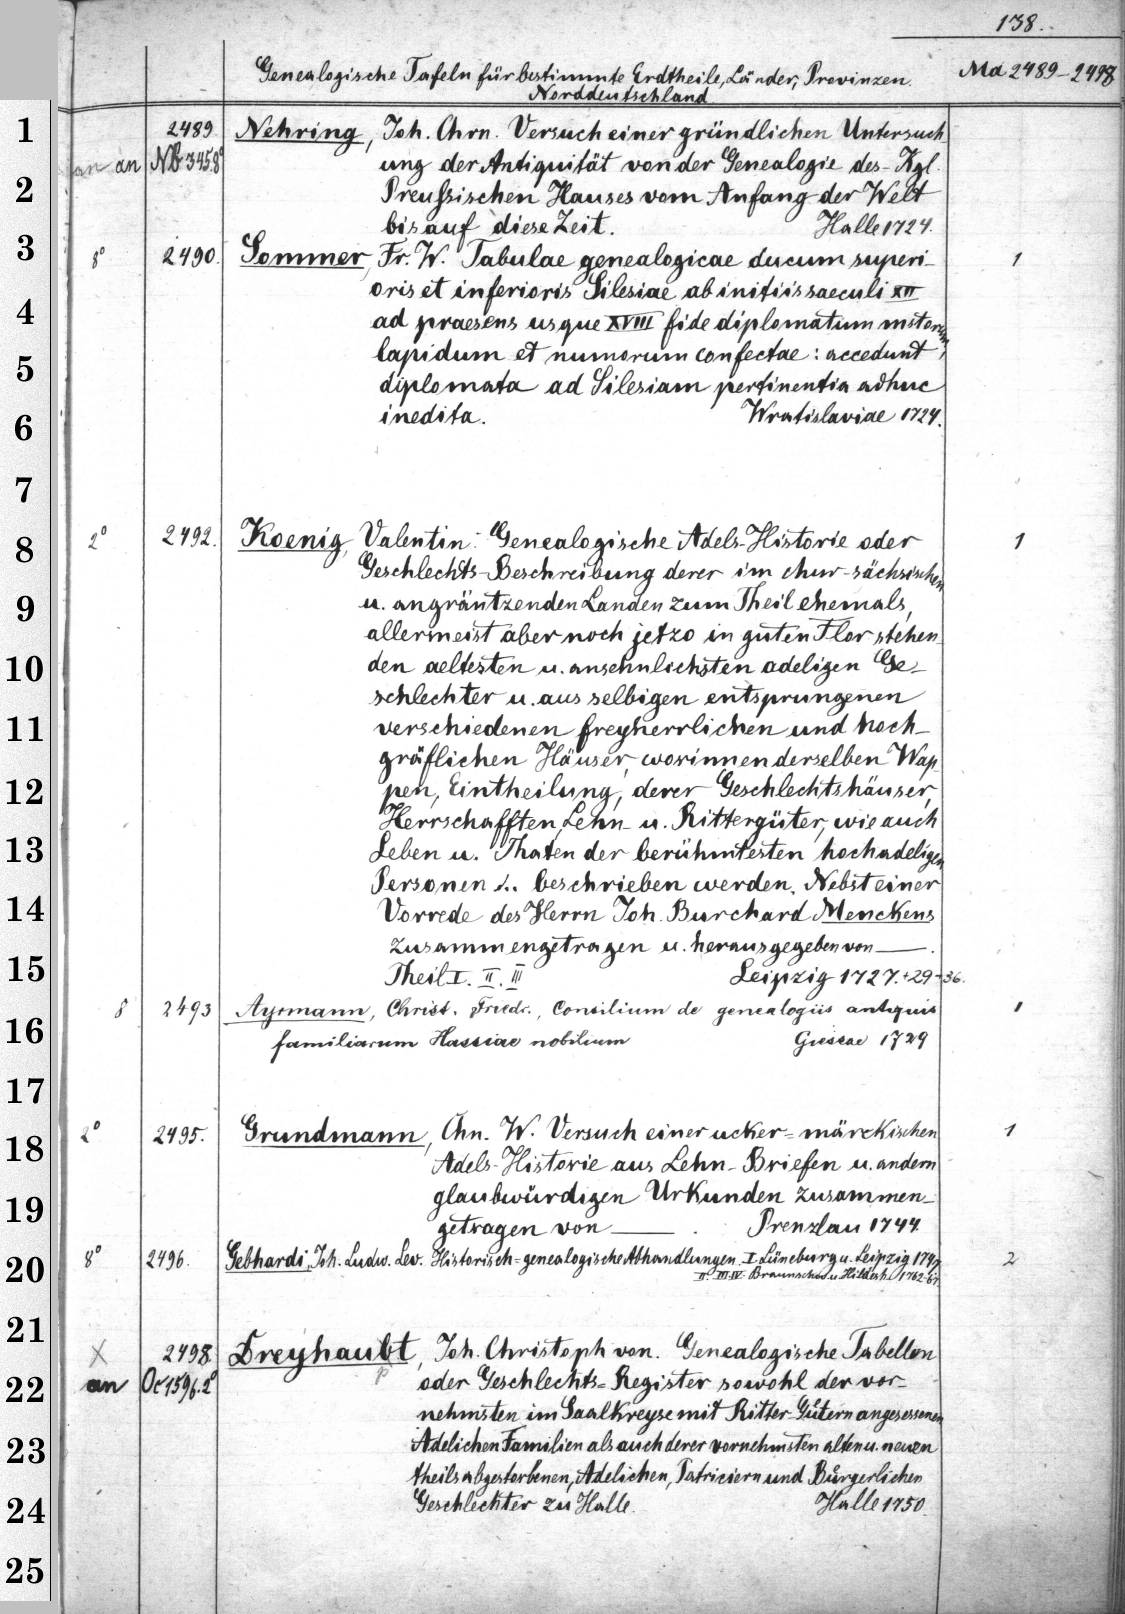 138.
Genealogische Tafeln für bestimmte Erdtheile, Länder, Provinzen. Ma 2489-2498
Norddeutschland
1 2489 Nehring, Joh. Chrn. Versuch einer gründlichen Untersuch
an an Nb 345.8° ung der Antiquität von der Genealogie des Kgl.
2 Preußischen Hauses vom Anfang der Welt
bis auf diese Zeit. Halle 1724.
3 8° 2490. Sommer, Fr. W. Tabulae genealogicae ducum superi-
oris et inferioris Silesiae ab initiis saeculi XII
4 ad praesens usque XVIII fide diplomatum mstorum,
5 lapidum et numorum confectae: accedunt
diplomata ad Silesiam pertinentia adhuc
6 inedita. Wratislaviae 1724.
1
7
8 2° 2492. Koenig, Valentin. Genealogische Adels-Historie oder 1
Geschlechts-Beschreibung derer im chur-sächsischen
9 u. angräntzenden Landen zum Theil ehemals,
allermeist aber noch jetzo in guten Flor stehen-
10 den aeltesten u. ansehnlichsten adeligen Ge-
schlechter u. aus selbigen entsprungenen
11 verschiedenen freyherrlichen und hoch-
gräflichen Häuser, worinnen derselben Wap-
12 pen, Eintheilung, derer Geschlechtshäuser,
Herrschafften, Lehn- u. Rittergüter, wie auch
13 Leben u. Thaten der berühmtesten hochadeligen
Personen ... beschrieben werden. Nebst einer
14 Vorrede des Herrn Joh. Burchard Menckens
zusammengetragen u. herausgegeben von —.
15 Theil I. II. III Leipzig 1727.+29-36.
8 2493 Ayrmann, Christ. Friedr., Consilium de genealogiis antiquis 1
16 familiarum Hassiae nobilium Giessae 1729
17
2° 2495. Grundmann, Chn. W. Versuch einer ucker=märckischen 1
18 Adels-Historie aus Lehn-Briefen u. andern
19 glaubwürdigen Urkunden zusammen-
getragen von —. Prenzlau 1744.
20 8° 2496. Gebhardi, Joh. Ludw. Lev. Historisch=genealogische Abhandlungen. I Lüneburg u. Leipzig 1747. 2
II. III. IV. Braunschw. u. Hildesh. 1762-67.
21
X 2498 Dreyhaubt, Joh. Christoph von. Genealogische Tabellen
p
22 an Oc 1596.2° oder Geschlechts=Register sowohl der vor-
nehmsten im Saalkreyse mit Ritter-Gütern angesessenen
23 Adelichen Familien als auch derer vornehmsten alten u. neuen
theils abgestorbenen, Adelichen, Patriciern und Bürgerlichen
24 Geschlechter zu Halle. Halle 1750.
25